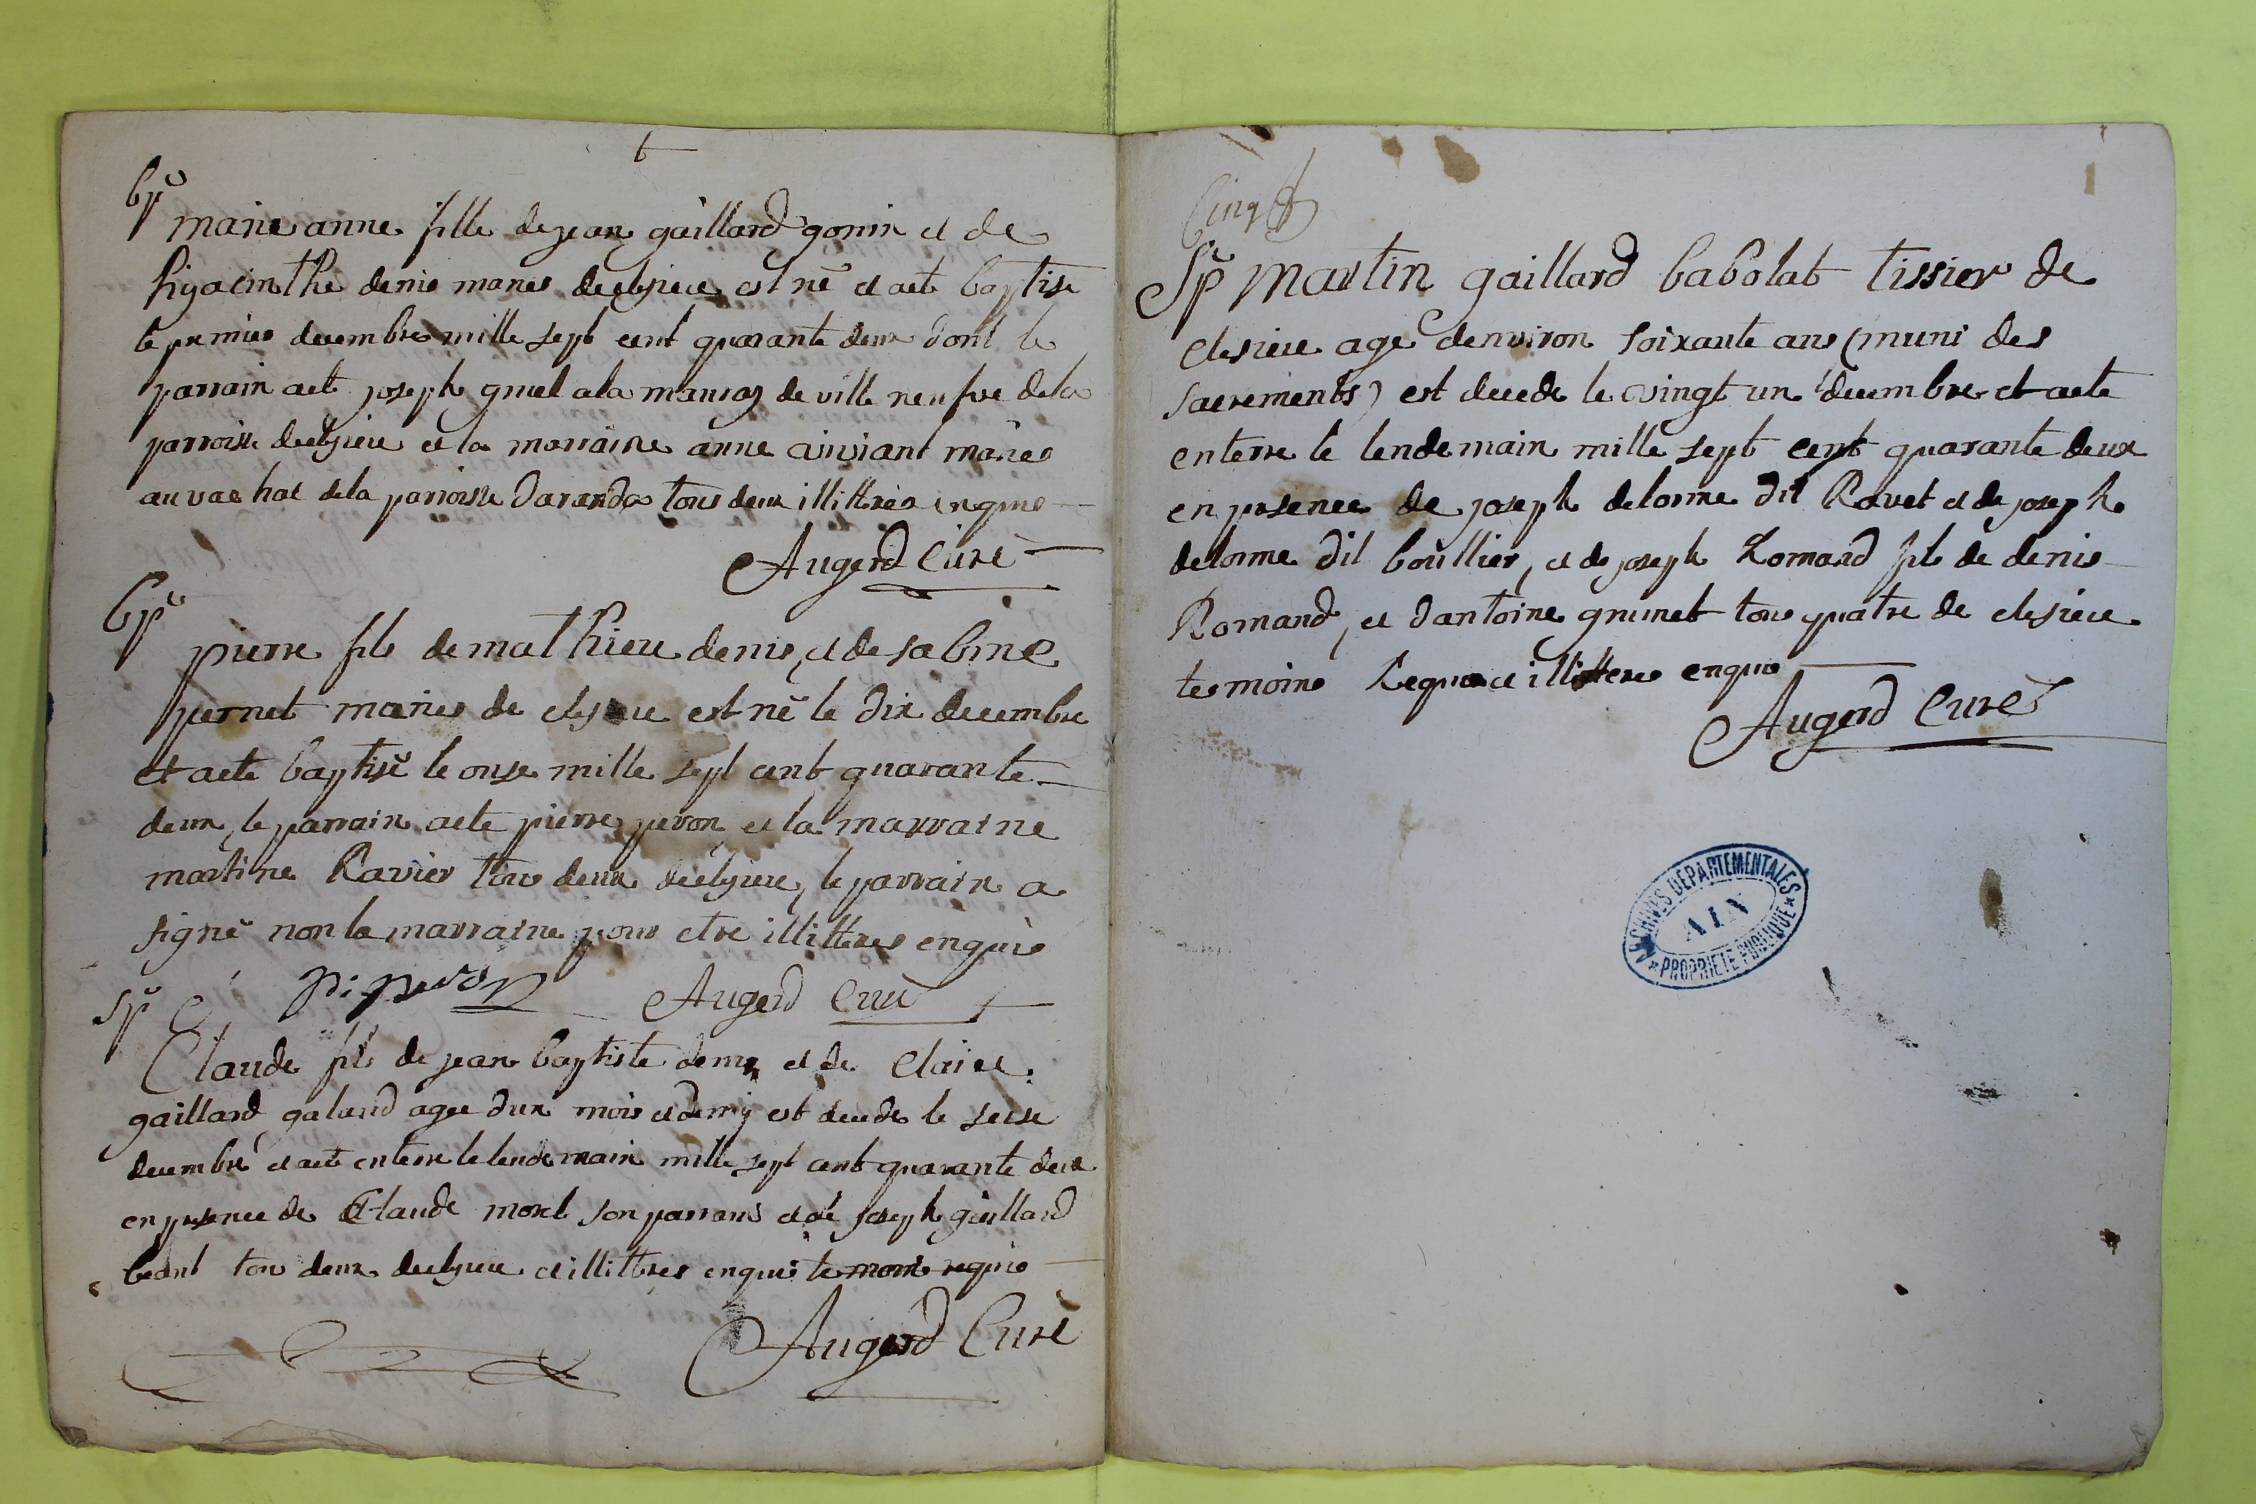 bp
marie anne fille de jean gaillard gonin et de
hyacinthe denis mariés de clesieu est né et aeté baptisé
le premier decembre mille sept cent quarante deux dont le
parrain aeté joseph de ville neufve de la
parroisse de clesieu et la marraine anne viviant mariés
au vachat de la parroisse daranda tous deux illittres enquis
Augerd Curé
bp
pierre fils de mathieu denis, et de sabine
pernet mariés de clesieu est né le dix decembre
et aeté baptisé le onse mille sept cent quarante
deux, le parrain aeté pierre peron et la marraine
martine Ravier tous deux de clesieu, le parrain a
signé non la marraine pour etre illittres enquis
pi peron Augerd Curé
Sp
Claude fils de jean baptiste denis et de Claire
gaillard galand agee dun mois et demy est decede le seise
decembre et aeté enterré le lendemain mille sept cent quarante deux
en presence de Claude morel son parrain et de joseph gaillard
tous deux de clesieu et illittres enquis temoins requis
Augerd Curé
Cinq
Sp Martin gaillard babolat tissier de
clesieu agé denviron soixante ans (muni des
sacrements) est decede le vingt un decembre et aeté
enterre le lendemain mille sept cent quarante deux
en presence de joseph delorme dit Ravet et de joseph
delorme dit boullier, et de joseph Romand fils de denis
Romand, et dantoine grumet tous quatre de clesieu
temoins Requis et illitteres enquis
Augerd Curé
ARCHIVES DEPARTEMENTALES
AIN
* PROPRIETE PUBLIQUE *